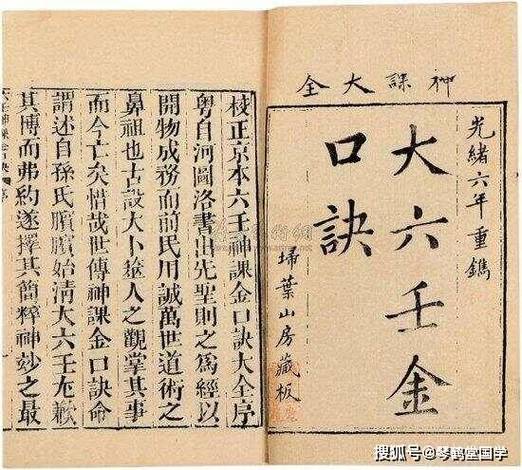 神課大全
光緒六年重鐫
大六壬金
口訣
埽葉山房藏板
校正京本六壬神課金口訣大全序
粵自河圖洛書出先聖則之爲經以
開物成務而前民用誠萬世道術之
鼻祖也古設大卜簭人之觀掌其事
而今亡矣惜哉世傳神課金口訣命
謂述自孫氏臏臏始清大六壬尨歉
其博而弗約遂擇其簡粹神妙之最
搜狐号@琴鹤堂国学